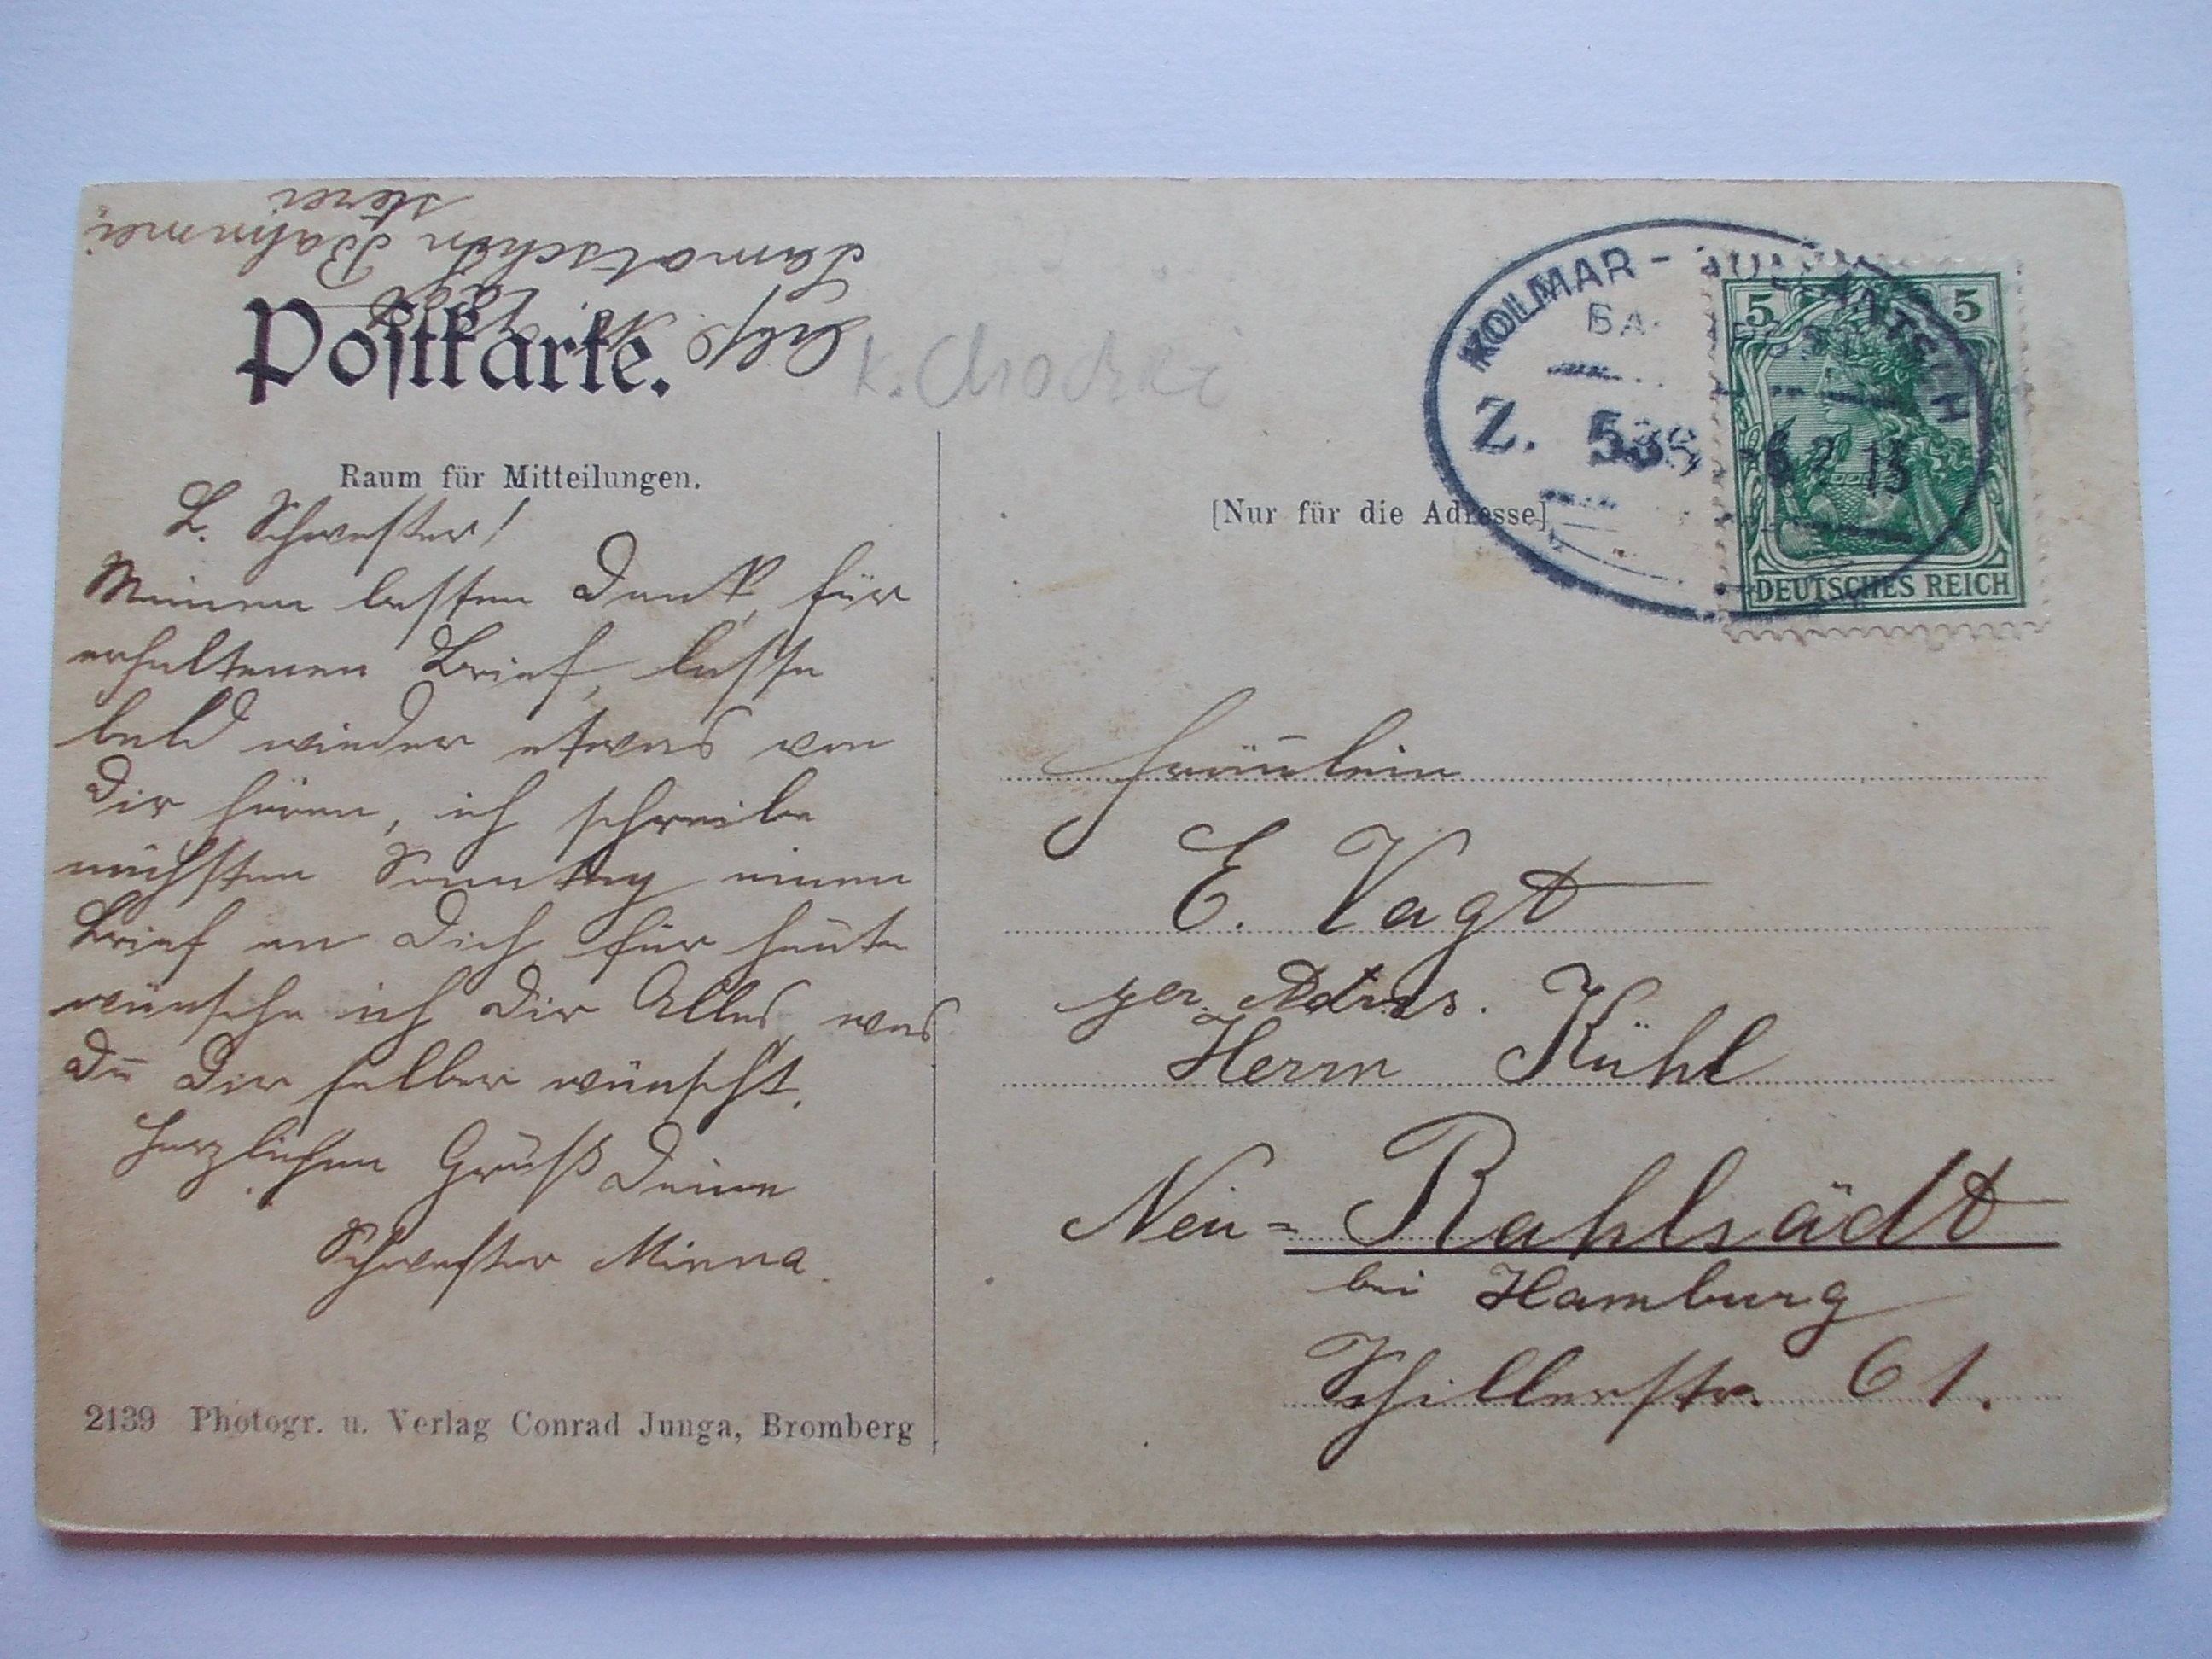 Postkarte.
Raum für Mitteilungen.
L. Schwester!
Meinen besten Dank, für
erhaltenen Brief, lasse
bald wieder etwas von
Dir hören, ich schreibe
nächsten Sonntag einen
Brief an Dich, für heute
wünsche ich Dir Alles, was
Du Dir selber wünscht.
Herzlichen Gruß Deine
Schwester Minna.
2139 Photogr. u. Verlag Conrad Junga, Bromberg
Vagt
Samotschin Bahnmei
sterei
K. Chodzi
KOLMAR -
Z. 538
6 2 13
5 5
DEUTSCHES REICH
[Nur für die Adresse]
Fräulein
E. Vagt
per Adres.
Herrn Kühl
Neu=Rahlsädt
bei Hamburg
Schillerstr. 61.